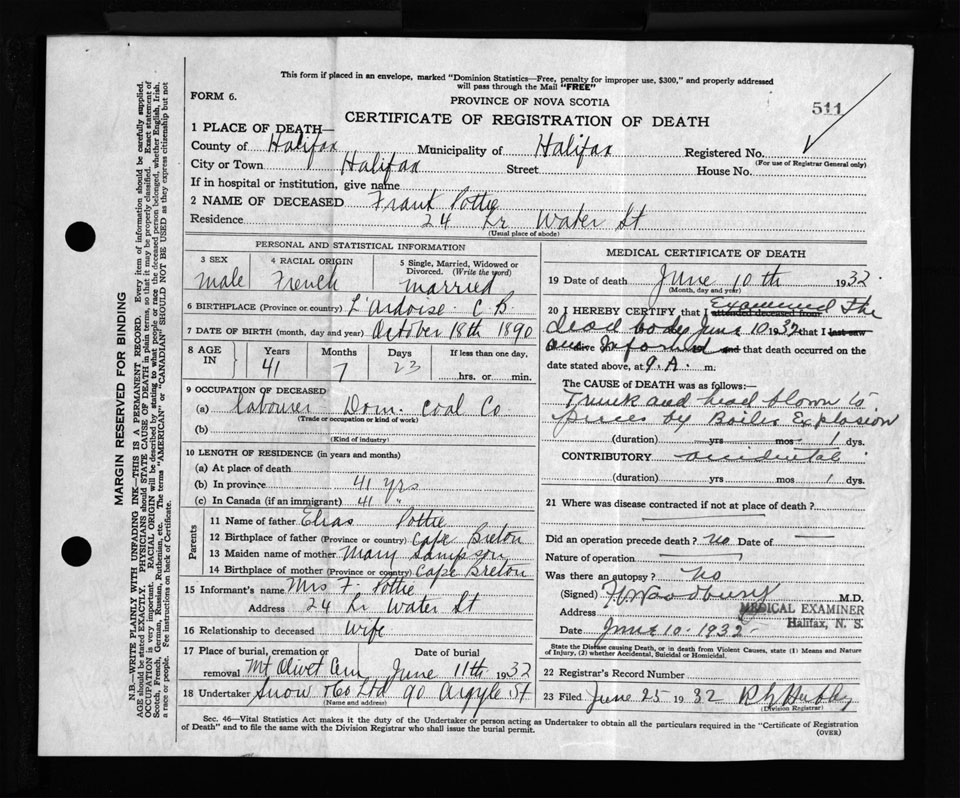 This form if placed in an envelope, marked "Dominion Statistics—Free, penalty for improper use, $300," and properly addressed
will pass through the Mail "FREE"
FORM 6.
PROVINCE OF NOVA SCOTIA
511
CERTIFICATE OF REGISTRATION OF DEATH
1 PLACE OF DEATH—
County of Halifax Municipality of Halifax Registered No.
(For use of Registrar General only)
City or Town Halifax Street House No.
If in hospital or institution, give name
2 NAME OF DECEASED Frank Pottie
Residence 24 Lr Water St
(Usual place of abode)
PERSONAL AND STATISTICAL INFORMATION
3 SEX 4 RACIAL ORIGIN 5 Single, Married, Widowed or
Divorced. (Write the word)
male French married
6 BIRTHPLACE (Province or country) L'Ardoise C B
7 DATE OF BIRTH (month, day and year) October 18th 1890
8 AGE IN Years Months Days If less than one day,
41 7 23 hrs. or min.
9 OCCUPATION OF DECEASED
(a) Labourer Dom. Coal Co
(Trade or occupation or kind of work)
(b)
(Kind of industry)
10 LENGTH OF RESIDENCE (in years and months)
(a) At place of death
(b) In province 41 yrs
(c) In Canada (if an immigrant) 41 "
Parents
11 Name of father Elias Pottie
12 Birthplace of father (Province or country) Cape Breton
13 Maiden name of mother Mary Sampson
14 Birthplace of mother (Province or country) Cape Breton
15 Informant's name Mrs F. Pottie
Address 24 Lr Water St
16 Relationship to deceased wife
17 Place of burial, cremation or Date of burial
removal Mt Olivet Cem June 11th 1932
18 Undertaker Snow & Co Ltd 90 Argyle St
(Name and address)
MEDICAL CERTIFICATE OF DEATH
19 Date of death June 10th 1932
(Month, day and year)
20 I HEREBY CERTIFY that I attended deceased from Examined the
dead body June 10 1932 that I last saw
alive and Informed and that death occurred on the
date stated above, at 9.A. m.
The CAUSE OF DEATH was as follows:—
Trunk and head blown to
pieces by Boiler Explosion
(duration) yrs mos 1 dys.
CONTRIBUTORY accidental
(duration) yrs mos. 1 dys.
21 Where was disease contracted if not at place of death?
Did an operation precede death? no Date of —
Nature of operation —
Was there an autopsy? no
(Signed) M.D.
Address MEDICAL EXAMINER
Halifax, N. S.
Date June 10 - 1932 -
State the Disease causing Death, or in death from Violent Causes, state (1) Means and Nature
of Injury, (2) whether Accidental, Suicidal or Homicidal.
22 Registrar's Record Number
23 Filed June 25 1932
(Division Registrar)
Sec. 46—Vital Statistics Act makes it the duty of the Undertaker or person acting as Undertaker to obtain all the particulars required in the "Certificate of Registration
of Death" and to file the same with the Division Registrar who shall issue the burial permit.
(OVER)
MARGIN RESERVED FOR BINDING
N.B.—WRITE PLAINLY WITH UNFADING INK—THIS IS A PERMANENT RECORD. Every item of information should be carefully supplied.
AGE should be stated EXACTLY. PHYSICIANS should STATE CAUSE OF DEATH in plain terms, so that it may be properly classified. Exact statement of
OCCUPATION is very important. RACIAL ORIGIN will be described by stating to what people or race the deceased person belonged, whether English, Irish,
Scotch, French, German, Russian, Ruthenian, etc. The terms "AMERICAN" or "CANADIAN" SHOULD NOT BE USED as they express citizenship but not
a race or people. See instructions on back of Certificate.